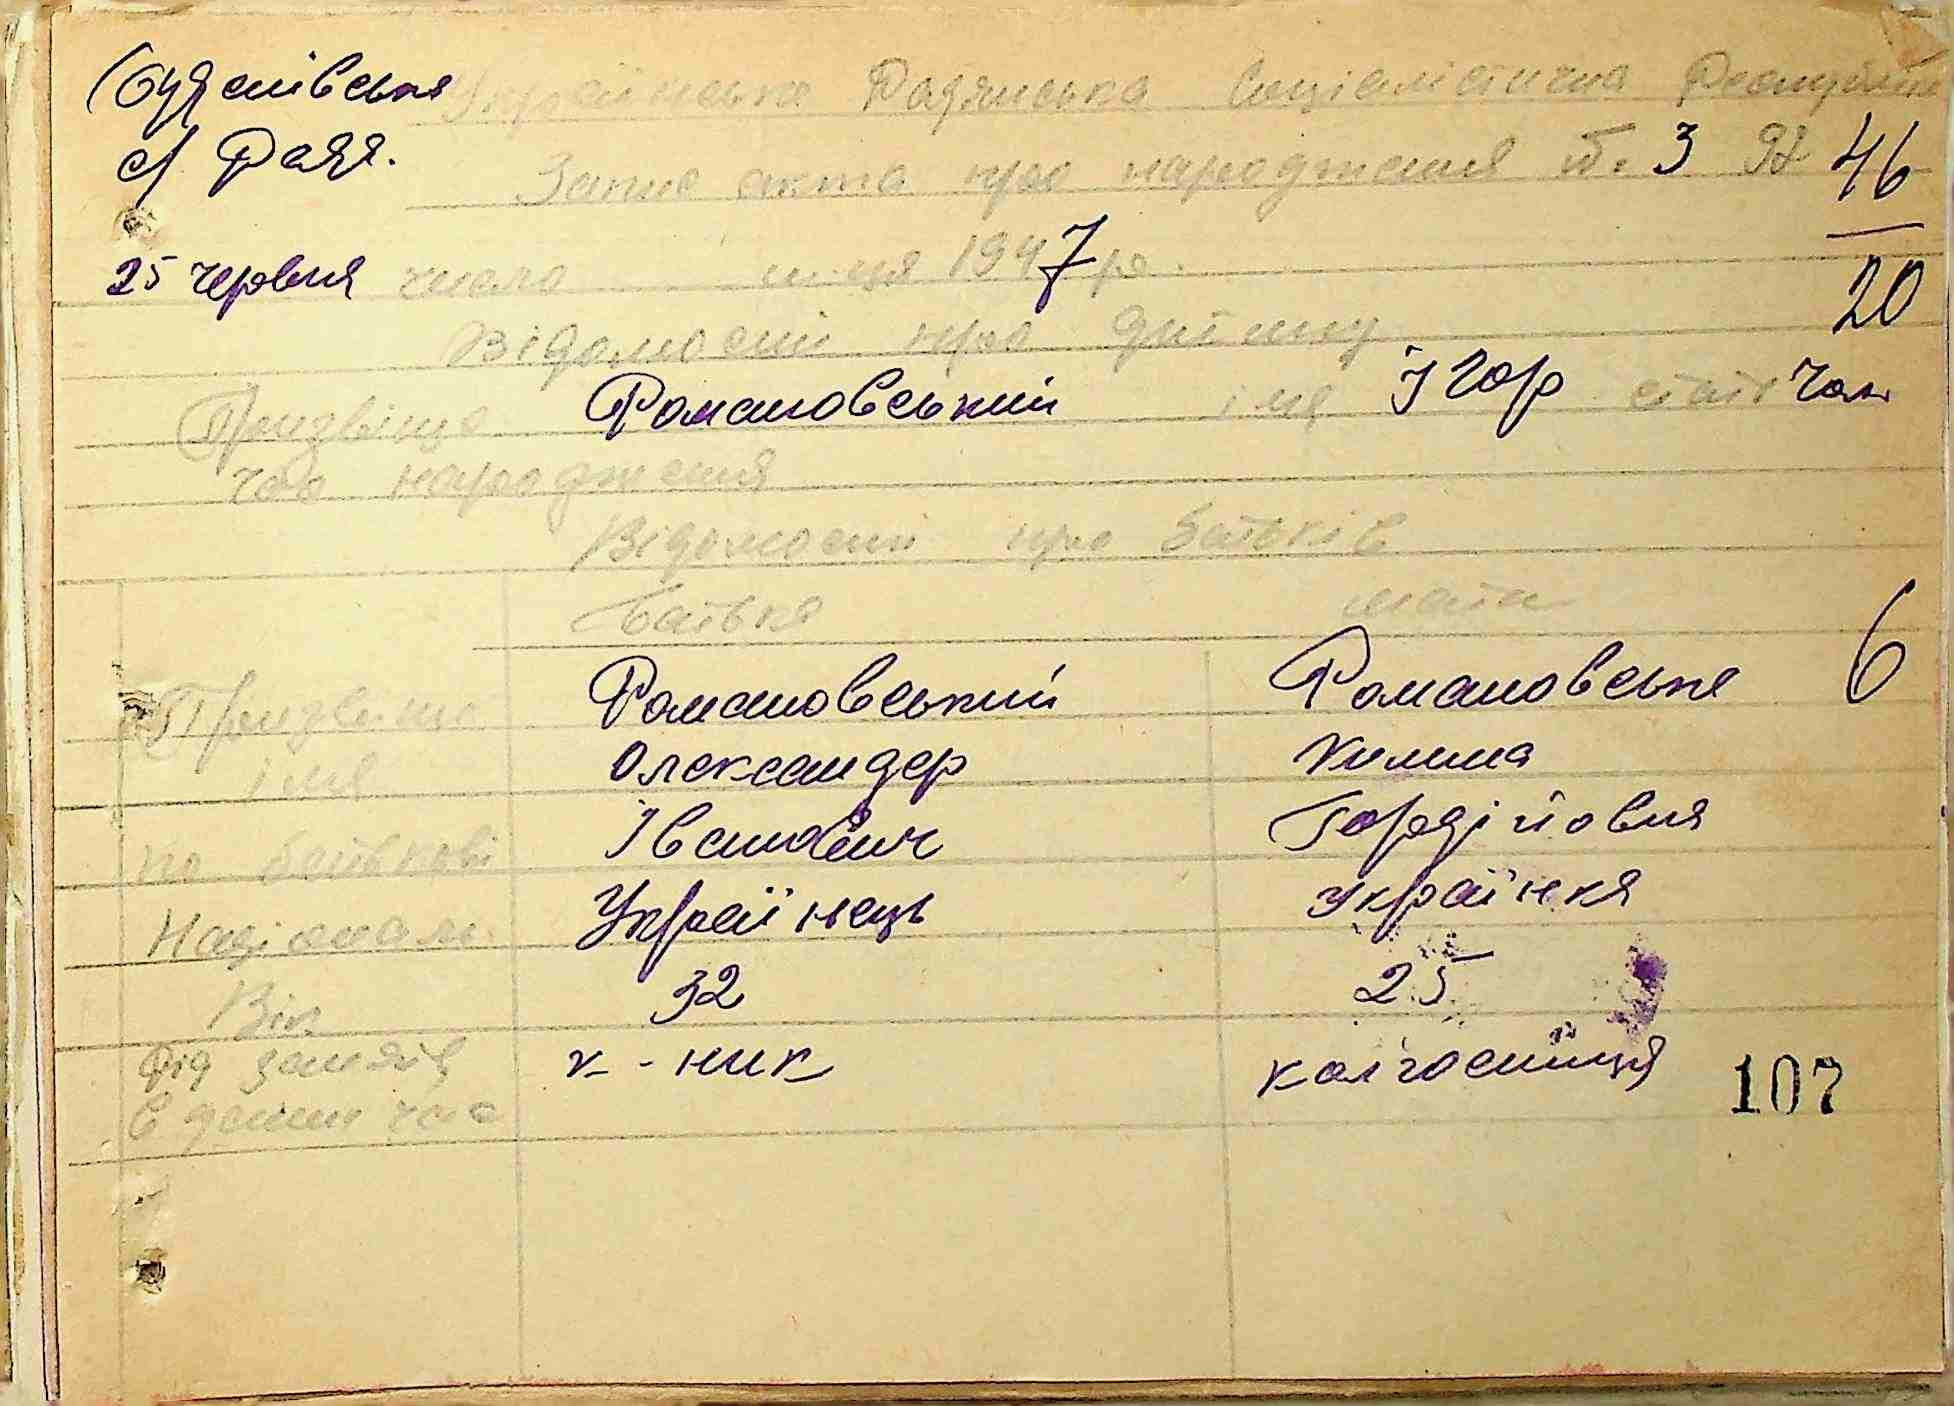 Українська Радянська Соціалістична Республіка
с/Рада.
Запис акта про народження т. 3 № 46
20
25 червня число м-ця 1947 р.
Відомості про дитину
Прізвище Романовський імя Ігор стать чол
час народження
Відомості про батьків
Батька мати
Прізвище Романовський Романовська 6
імя Олександер Килина
по батькові Іванович Гордіївовна
Національн. Українець Українка
Вік 32 25
Рід занять к-ник колгоспниця
в даний час
107